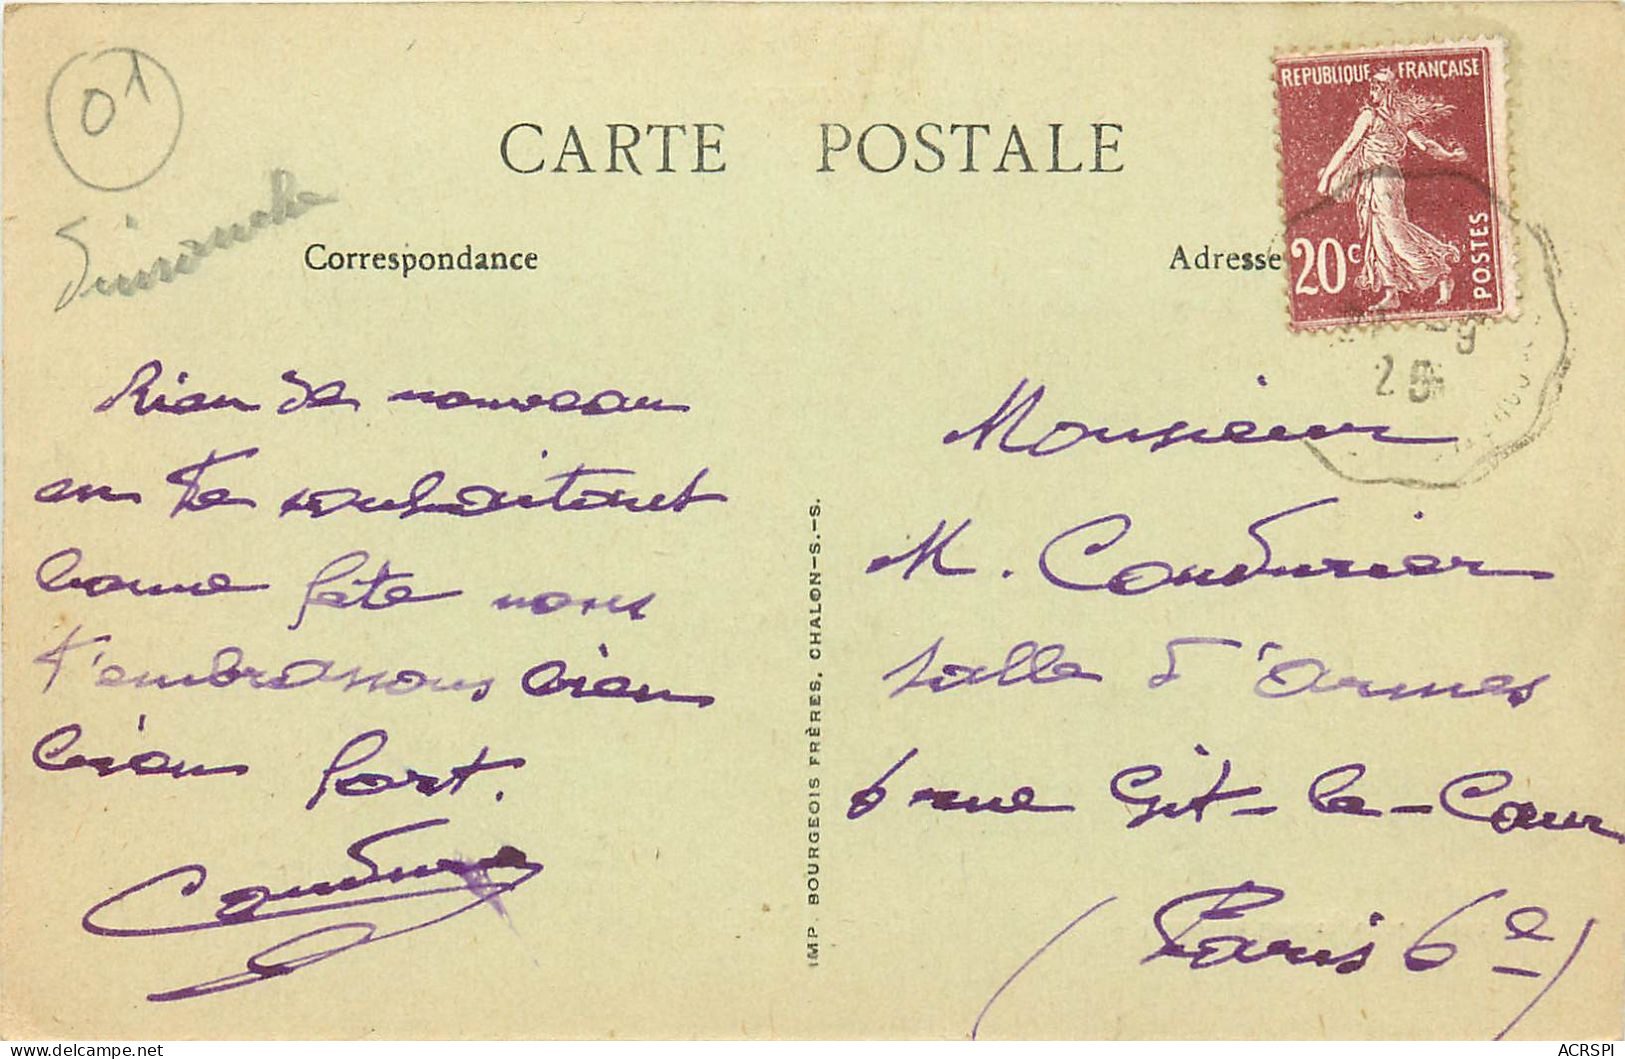 01
CARTE POSTALE
REPUBLIQUE FRANÇAISE
20c
POSTES
Correspondance
Adresse
Rien de nouveau
en te souhaitant
bonne fête nous
t'embrassons bien
bien fort.
Coudurier
IMP. BOURGEOIS FRÈRES. CHALON-S.-S.
Monsieur
M. Coudurier
salle d'armes
6 rue Gît-le-Cœur
(Paris 6e)
delcampe.net
ACRSPI